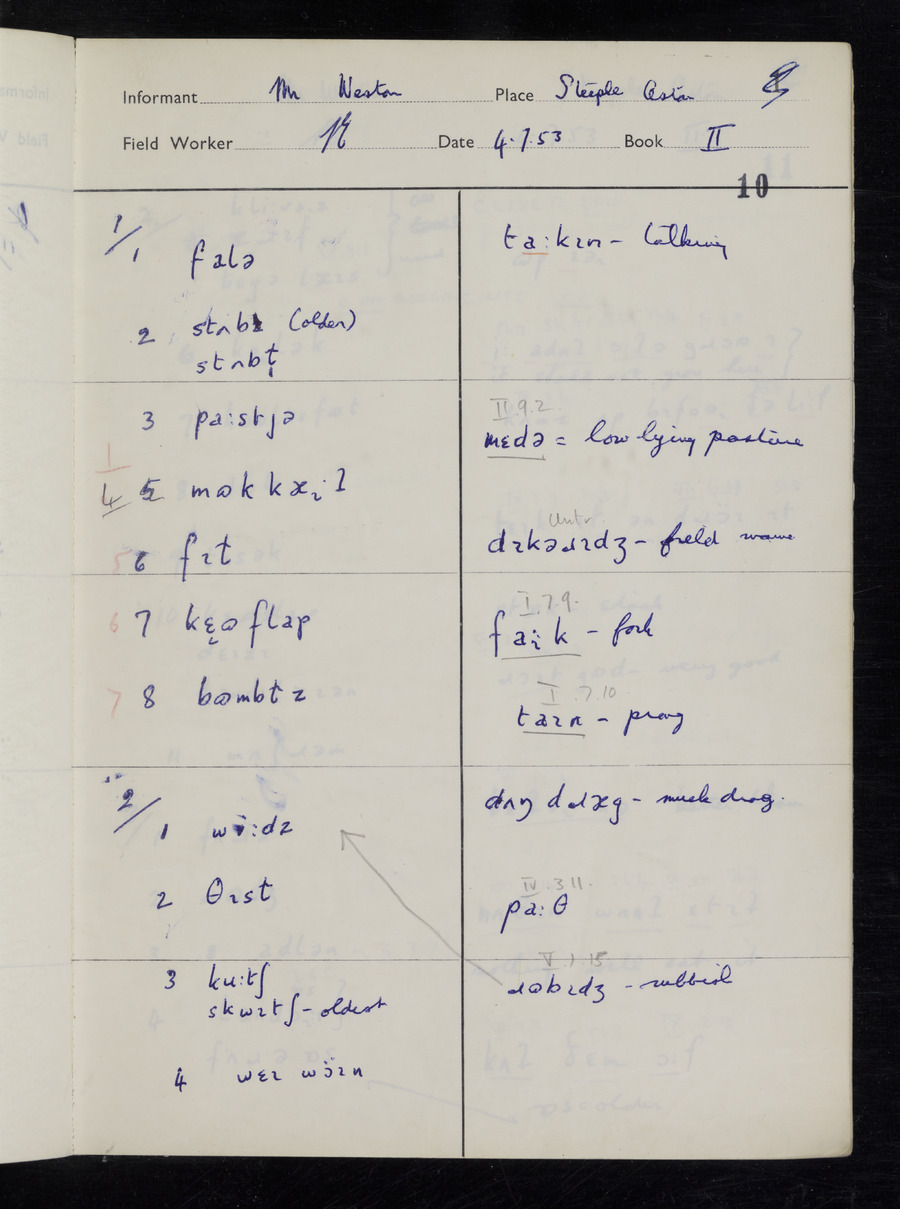 Informant Mr Weston Place Steeple Aston
Field Worker Date 4.7.53 Book II
10
1/
1 falə
2 stʌbɫ (older)
stʌbɫ̩
3 pa:stjə
4 5
6 fɪt
7
8
2/
1
2 θɪst
3 ku:tʃ
skwɪtʃ - oldest
4 wɛɪ wɔ̈ɪn
ta:kɪn - talking
II.9.2
mɛdə = low lying pasture
dɪkəɹɪdʒ - field name
I.7.9.
- fork
I.7.10.
taɪn - prong
dʌŋ dɹæg - muck drag.
IV.3 11.
pa:θ
V.1.15
ɹɷbɪdʒ - rubbish